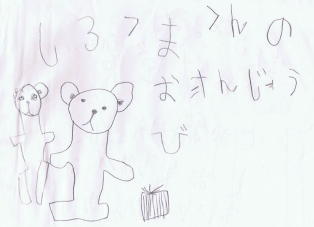 しろくまくんの
おたんじょう
び